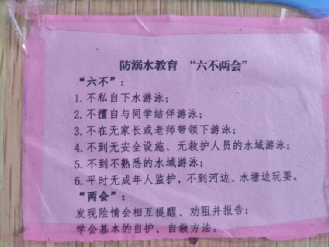 防溺水教育 “六不两会”
“六不”：
1. 不私自下水游泳；
2. 不擅自与同学结伴游泳；
3. 不在无家长或老师带领下游泳；
4. 不到无安全设施、无救护人员的水域游泳；
5. 不到不熟悉的水域游泳；
6. 平时无成年人监护，不到河边、水塘边玩耍。
“两会”：
发现险情会相互提醒、劝阻并报告；
学会基本的自护、自救方法。